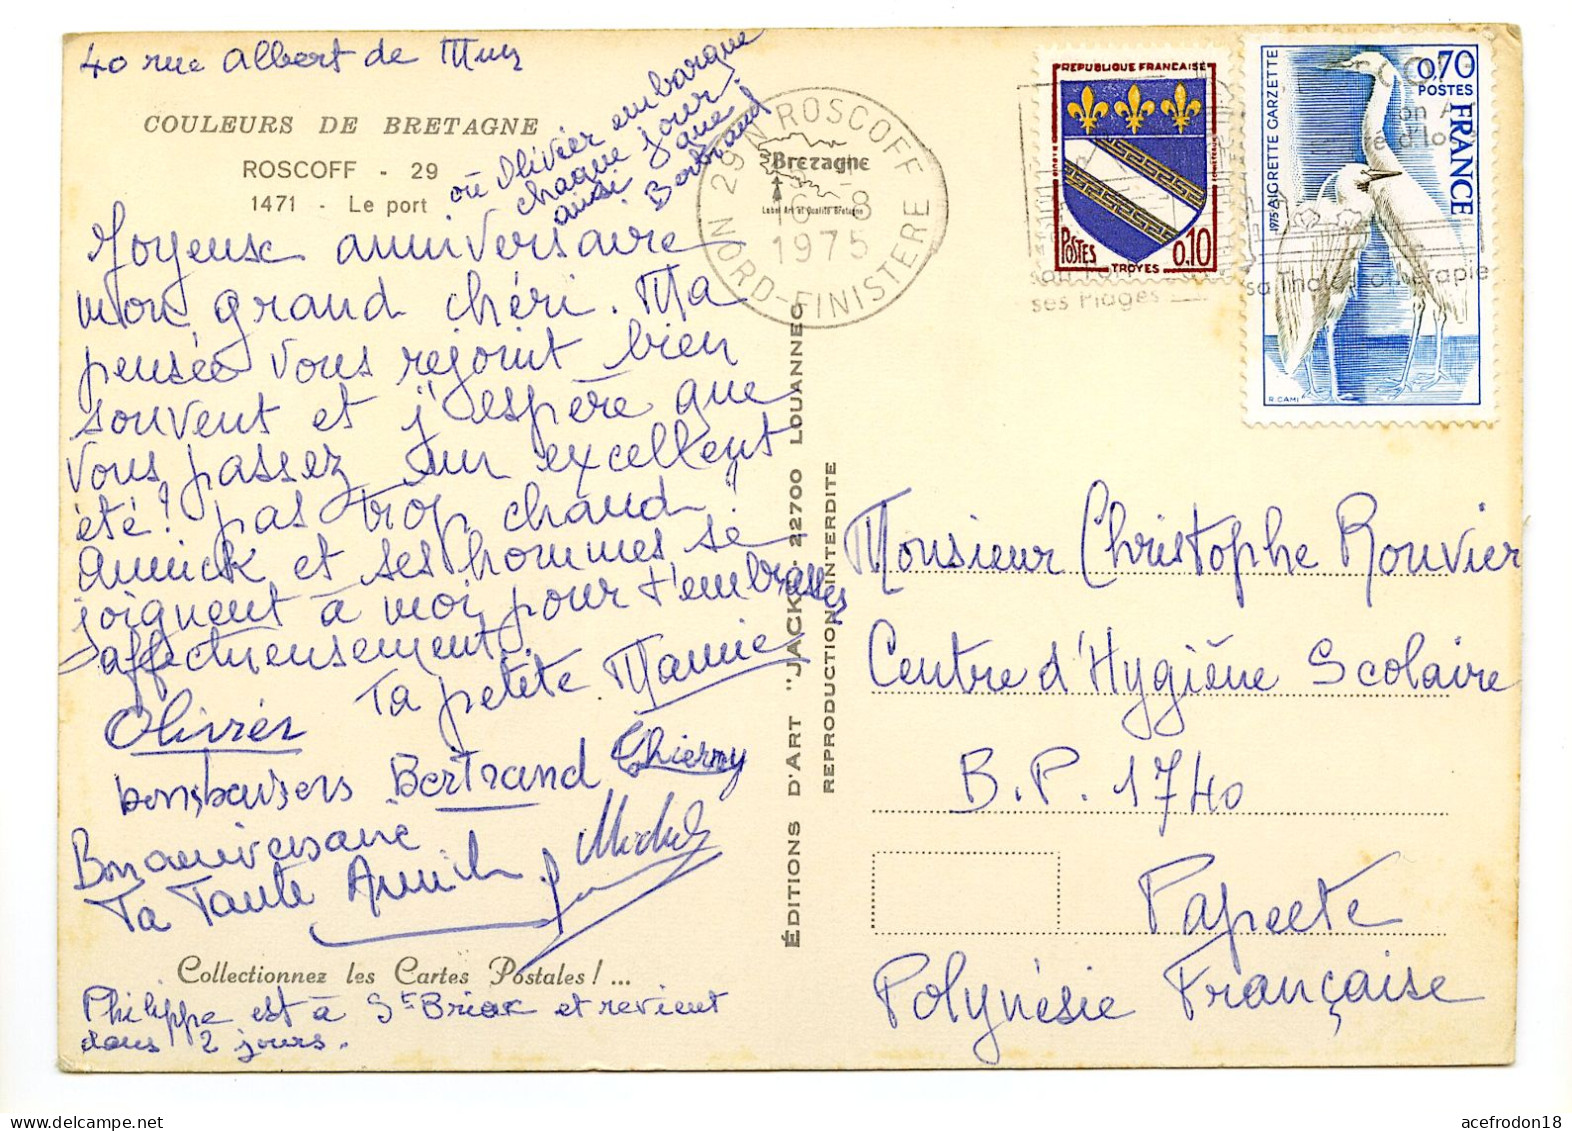 40 rue Albert de Mun
COULEURS DE BRETAGNE
ROSCOFF - 29
1471 - Le port
où Olivier embarque
chaque jour
ainsi que
Bertrand
Joyeux anniversaire
mon grand chéri. Ma
pensée vous rejoint bien
souvent et j'espère que
vous passez un excellent
été! "pas trop chaud"
Annick et ses hommes se
joignent à moi pour t'embrasser
affectueusement.
Ta petite Mamie
Olivier
bons baisers Bertrand Thierry
Bon anniversaire
Ta Tante Annick Michel
Collectionnez les Cartes Postales! ...
Philippe est à St Briac et revient
dans 2 jours.
ÉDITIONS D'ART "JACK" 22700 LOUANNEC
REPRODUCTION INTERDITE
29 N ROSCOFF
Bretagne
Label Art et Qualité Bretagne
16 - 8
1975
NORD-FINISTERE
REPUBLIQUE FRANCAISE
POSTES
0,10
TROYES
ses Plages
sa Thalassothérapie
0,70
POSTES
FRANCE
1975 AIGRETTE GARZETTE
R. CAMI
Monsieur Christophe Rouvier
Centre d'Hygiène Scolaire
B.P. 1740
Papeete
Polynésie Française
acefrodon18